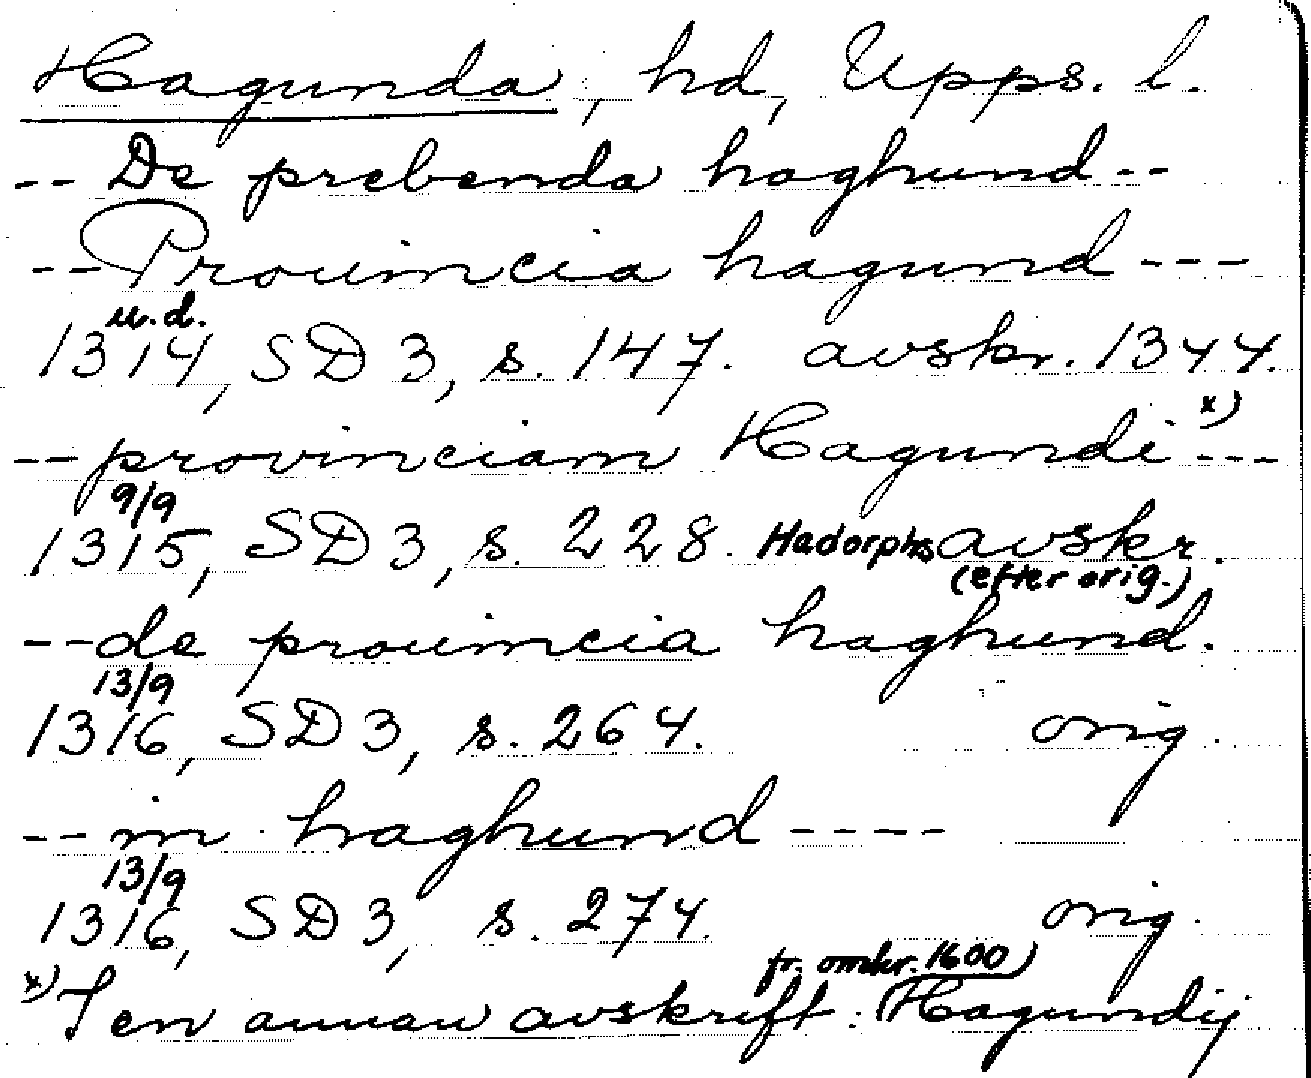 Hagunda, hd, Upps. l.
-- De prebenda haghund --
-- Prouincia hagund ---
u.d.
1314, SD 3, s. 147. avskr. 1344.
-- provinciam Hagundi x) ---
9/9
1315, SD 3, s. 228. Hadorphs avskr.
(efter orig.)
-- de prouincia haghund.
13/9
1316, SD 3, s. 264. orig.
-- in haghund ----
13/9
1316, SD 3, s. 274. orig.
fr. omkr. 1600)
x) I en annan avskrift: (Hagundij